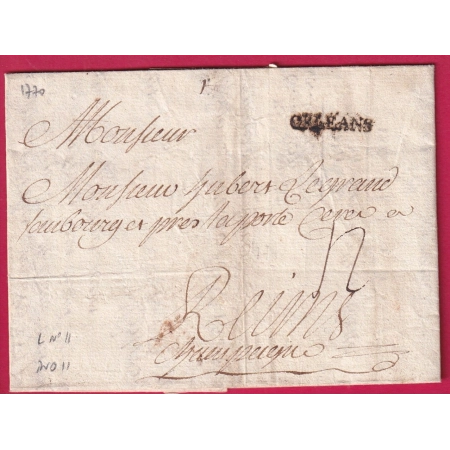 1770
1
ORLÉANS
Monsieur
Monsieur hubert Legrand
faubourg et pres la porte Ceres a
12
Reims
Champaigne
L n° 11
IND 11